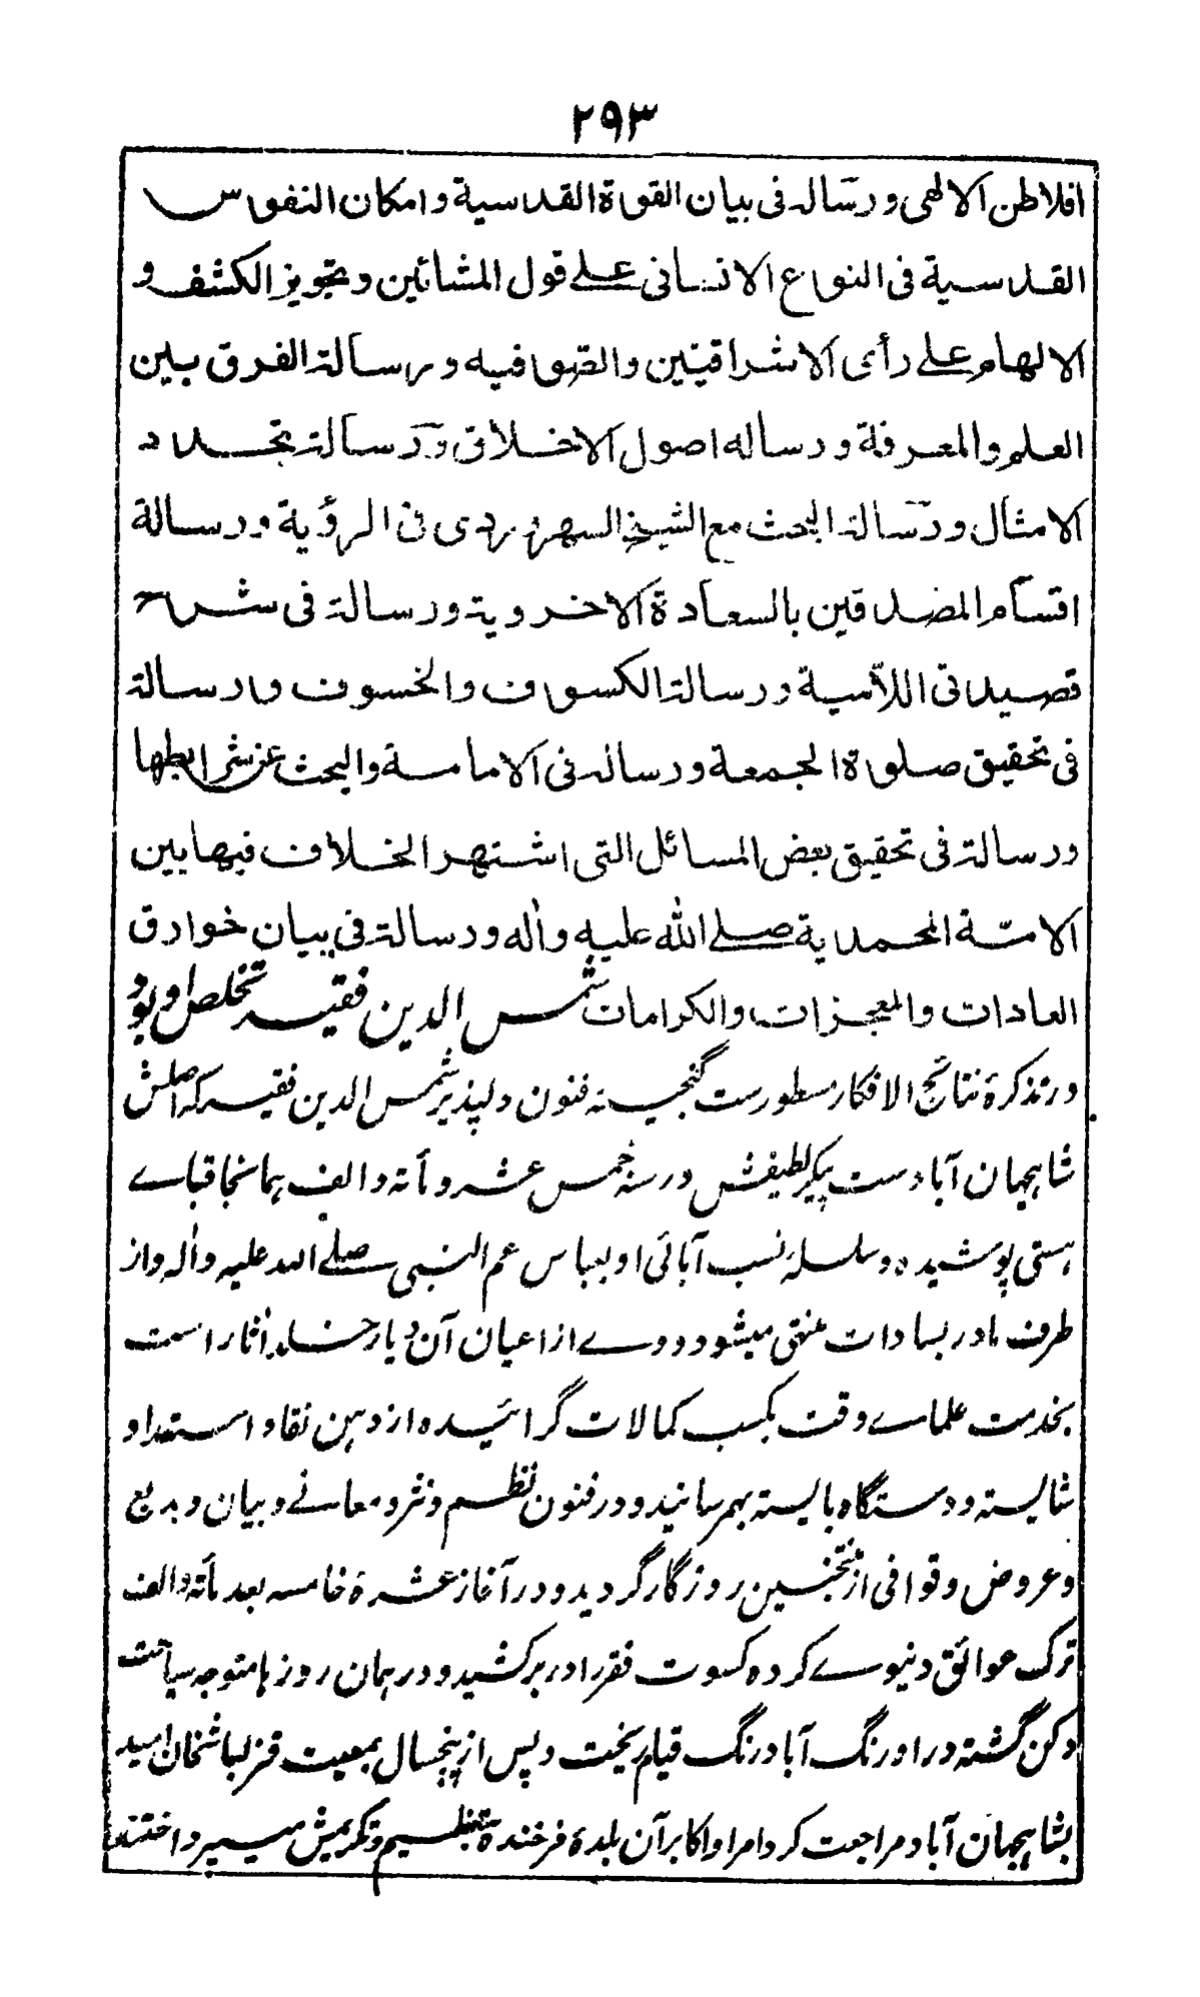 ۲۹۳
افلاطن الالهی و رسالہ فی بیان القوة القدسیة و امکان النفوس
القدسیة فی النواع الانسانی علے قول المشائین و تجویز الکشف و
الالهام علے رأی الاشراقیین والصوفیه و رسالة الفرق بین
العلم والمعرفة و رساله اصول الاخلاق و رسالة تجدد
الامثال و رسالة البحث مع الشیخ السهروردی فی الرؤیة و رسالة
اقسام المصدقین بالسعادة الاخرویة و رسالة فی شرح
قصیدتی اللامیة و رسالة الکسوف والخسوف و رسالة
فی تحقیق صلوة الجمعة و رسالہ فی الامامة والبحث عن شرایطها
و رسالة فی تحقیق بعض المسائل التی اشتهر الخلاف فیها بین
الامة المحمدیة صلے الله علیه واله و رسالة فی بیان خوارق
العادات والمعجزات والکرامات شمس الدین فقیر تخلص او بود
در تذکرۂ نتائج الافکار مسطورست گنجینۂ فنون دلپذیر شمس الدین فقیر کہ اصلش
شاہجہان آبادست پیکر لطیفش در سنہ خمس عشر و مأتہ و الف ہمانجا قباے
ہستی پوشیدہ و سلسلۂ نسب آبائی او بعباس عم النبی صلے اللہ علیہ وآلہ و از
طرف مادر بسادات منتهی میشود و وے از اعیان آن دیار خلد آثار است
بخدمت علماے وقت بکسب کمالات گرائیدہ از ذہن نقاد استعداد
شایستہ و دستگاہ بایستہ بہم رسانید و در فنون نظم و نثر و معانے و بیان و بدیع
و عروض و قوافی از منتخبین روزگار گردید و در آغاز عشرۂ خامسہ بعد مأتہ و الف
ترک عوائق دنیوے کردہ کسوت فقر را در بر کشید و در ہمان روزہا متوجہ سیاحت
دکن گشتہ در اورنگ آباد رنگ قیام ریخت و پس از پنجسال بمعیت قزلباشخان امید
بشاہجہان آباد مراجعت کرد امرا و اکابر آن بلدۂ فرخندہ بتعظیم و تکریمش میپرداختند